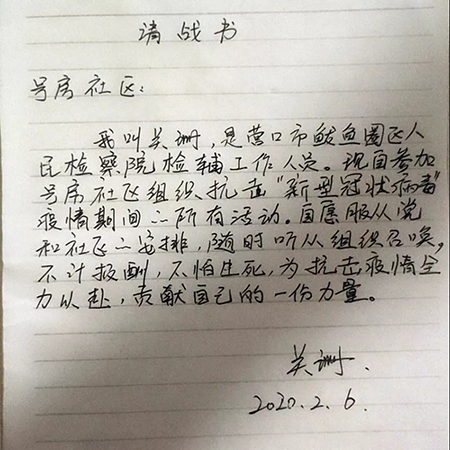 请战书
号房社区：
我叫关珊，是营口市鲅鱼圈区人
民检察院检辅工作人员。现自参加
号房社区组织抗击“新型冠状病毒”
疫情期间二所有活动。自愿服从党
和社区二安排，随时听从组织召唤，
不计报酬，不怕生死，为抗击疫情全
力以赴，贡献自己的一份力量。
关珊.
2020.2.6.